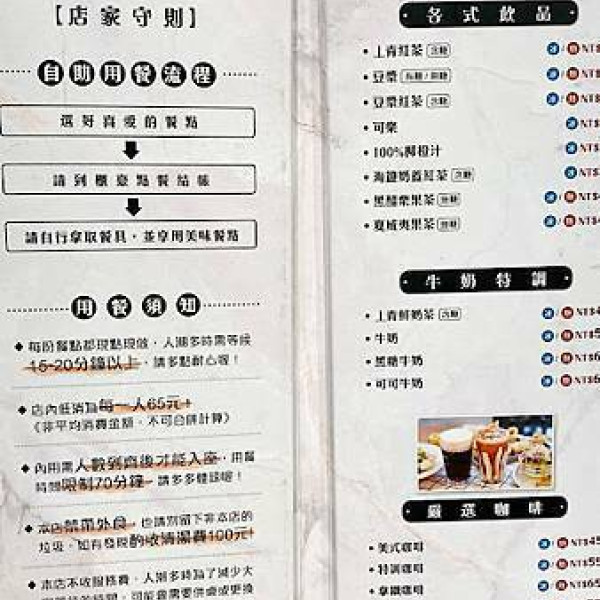 【店家守則】
自助用餐流程
選好喜愛的餐點
請到櫃臺點餐結帳
請自行拿取餐具，並享用美味餐點
用餐須知
◆ 每份餐點都現點現做，人潮多時需等候
15-20分鐘以上，請多點耐心喔！
◆ 店內低消為每一人65元！
《非平均消費金額，不可合併計算》
◆ 內用需人數到齊後才能入座，用餐
時間限制70分鐘，請多多體諒喔！
◆ 本店禁帶外食，也請別留下非本店的
垃圾，如有發現酌收清潔費100元！
◆ 本店不收服務費，人潮多時為了減少大
各式飲品
• 上青紅茶 含糖 冰 / 熱 NT$
• 豆漿 冰 / 熱 NT$
• 豆漿紅茶 含糖 冰 / 熱 NT$
• 可樂 冰 NT$
• 100%柳橙汁 冰 NT$
• 海鹽奶蓋紅茶 含糖 冰 NT$
• 黑醋栗果茶 冰 / 熱 NT$4
• 夏威夷果茶 冰 / 熱 NT$4
牛奶特調
• 上青鮮奶茶 含糖 冰 / 熱 NT$4
• 牛奶 冰 / 熱 NT$5
• 黑糖牛奶 冰 / 熱 NT$6
• 可可牛奶 冰 / 熱 NT$6
嚴選咖啡
• 美式咖啡 冰 / 熱 NT$45
• 特調咖啡 冰 / 熱 NT$55
• 拿鐵咖啡 冰 / 熱 NT$65